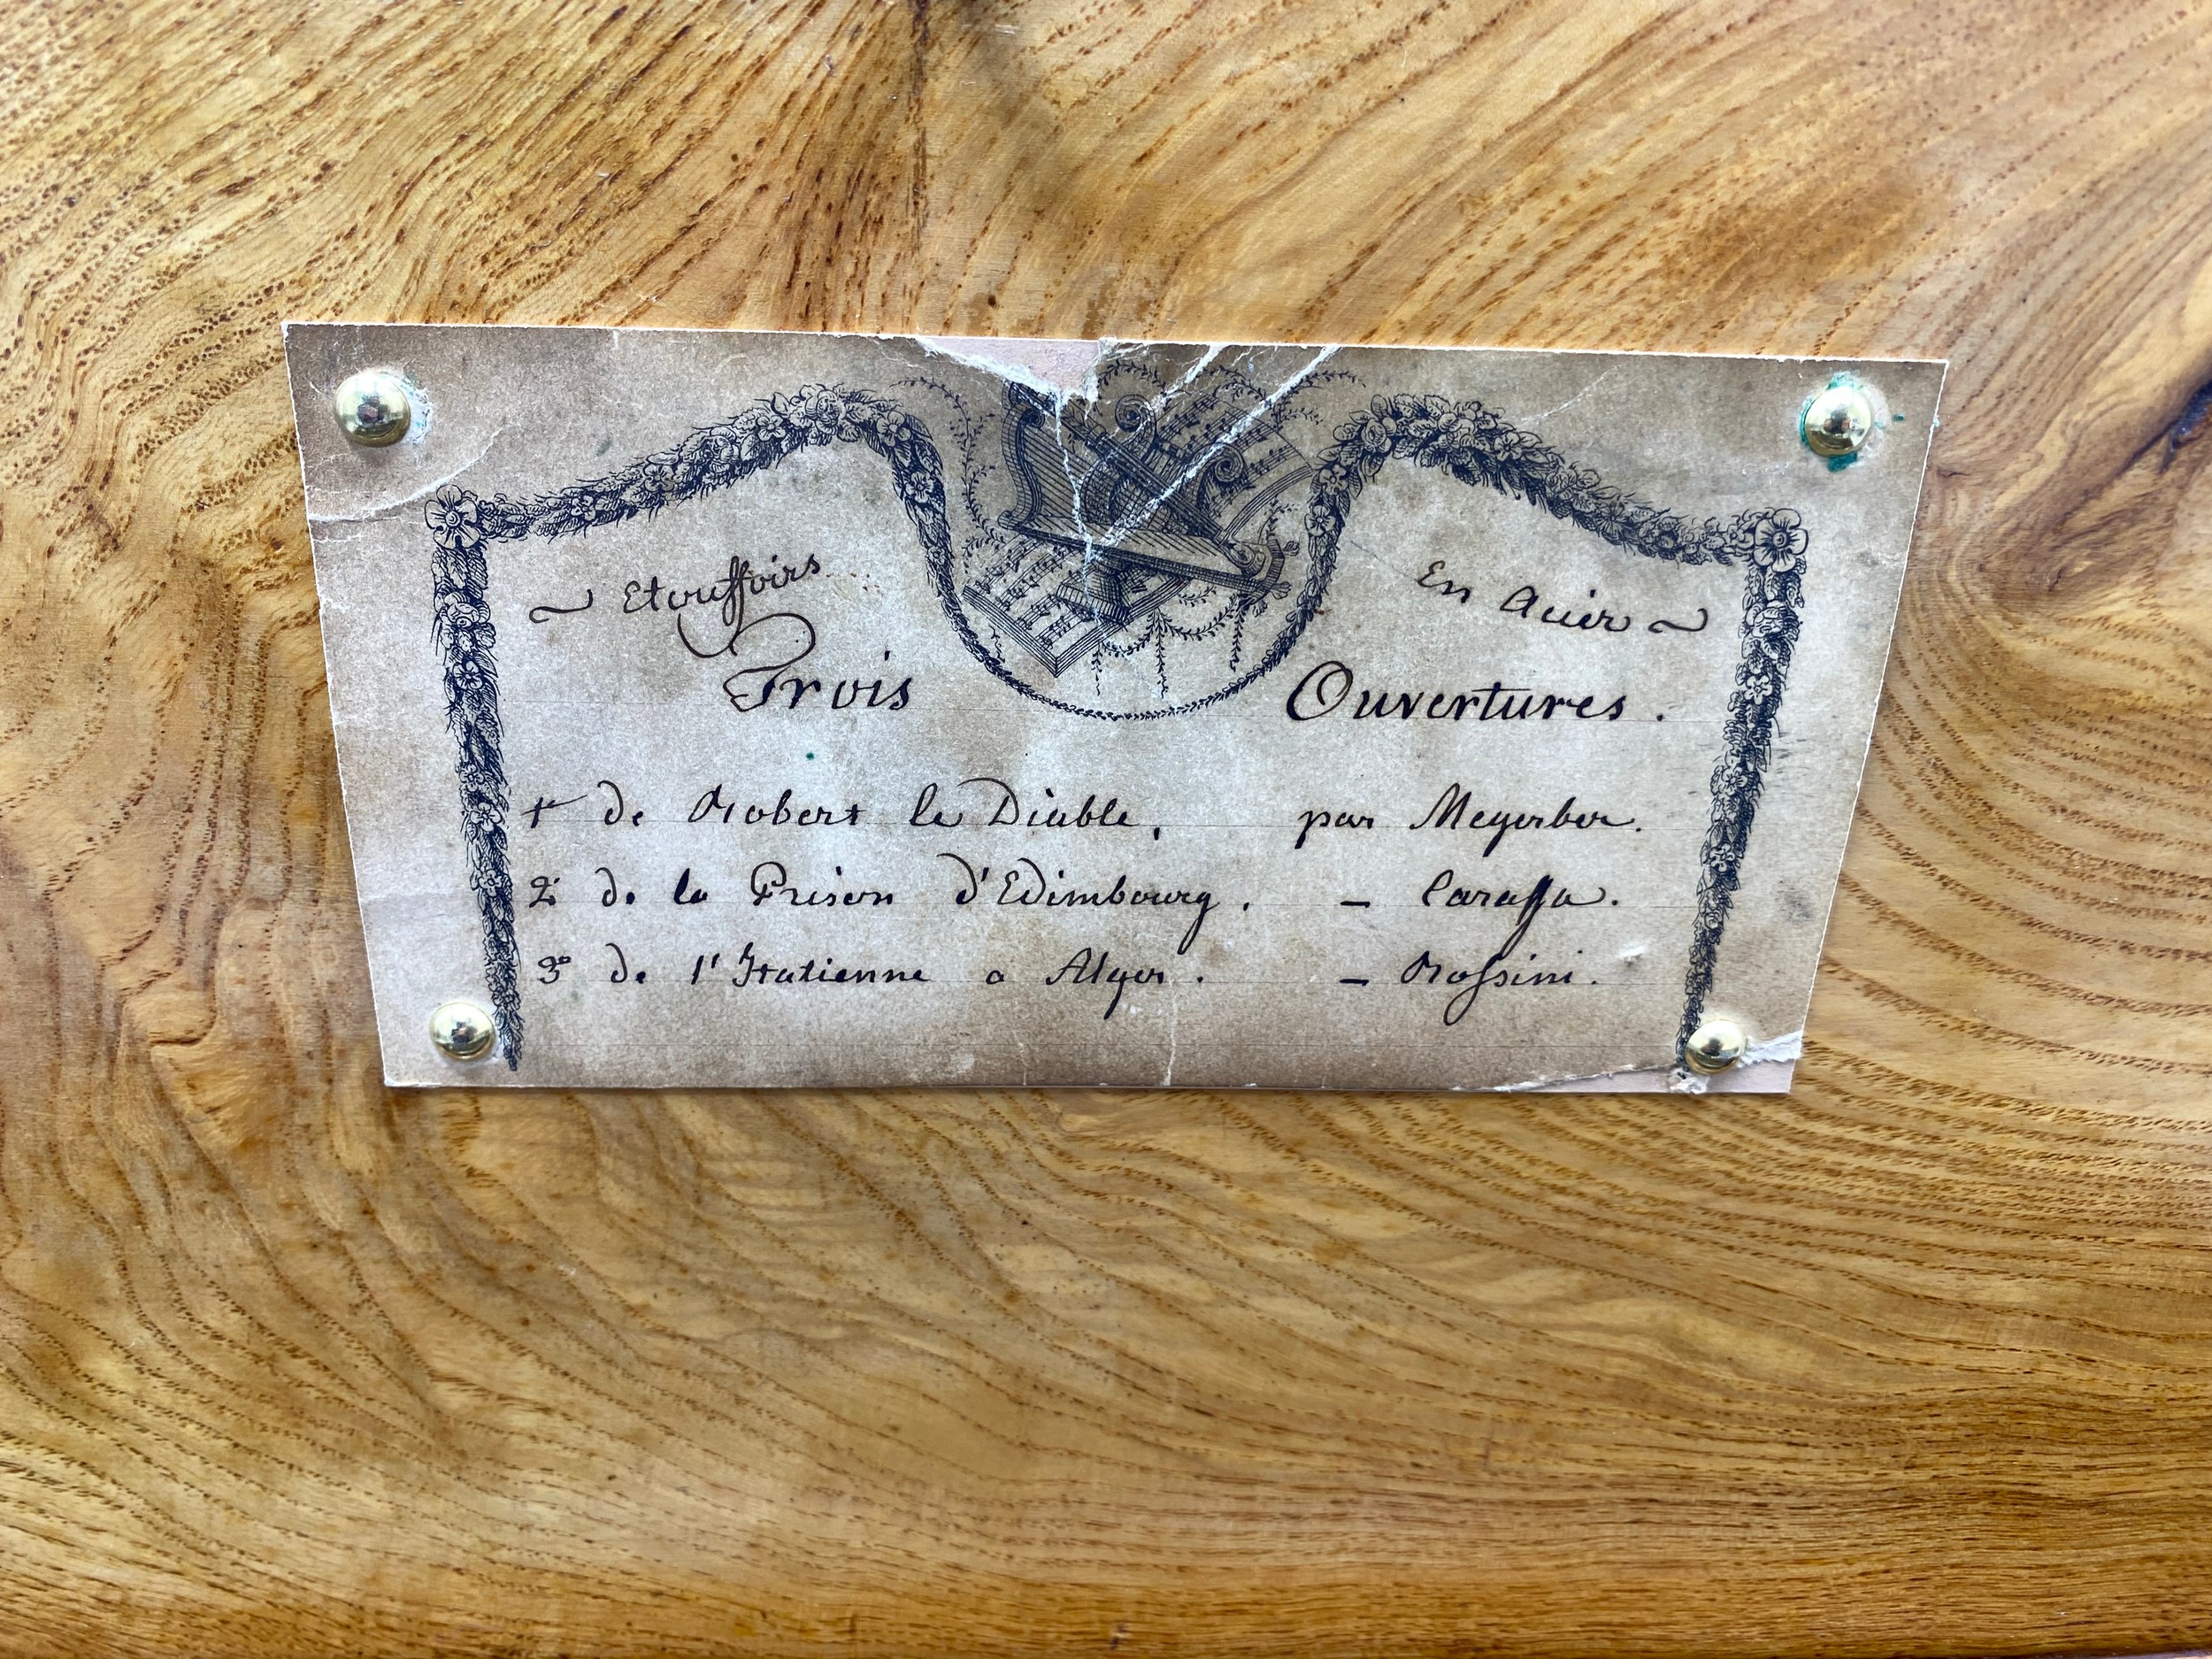 ~ Etouffoirs En Acier ~
Trois Ouvertures.
1re de Robert le Diable, par Meyerber.
2e de la Prison d'Edimbourg. – Caraffa.
3e de l'Italienne a Alger. – Rossini.